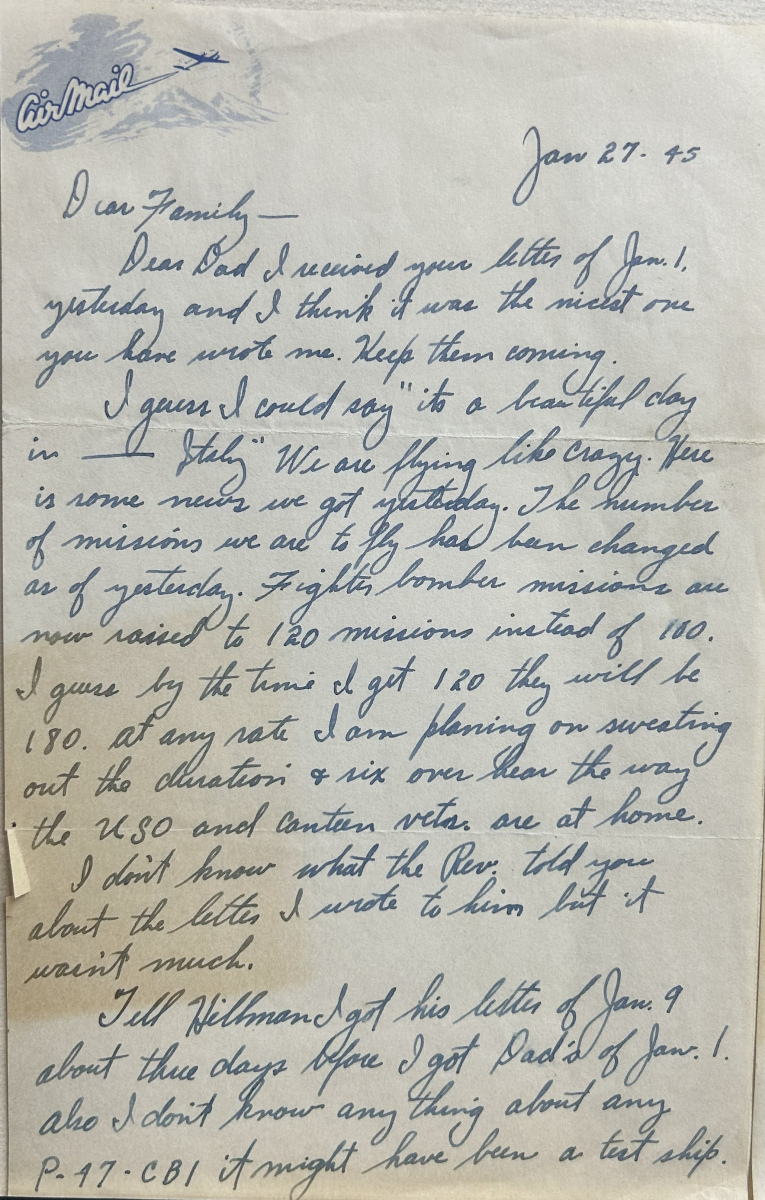 Air Mail
Jan 27. 45
Dear Family —
Dear Dad I received your letter of Jan. 1.
yesterday and I think it was the nicest one
you have wrote me. Keep them coming.
I guess I could say "its a beautiful day
in —— Italy" We are flying like crazy. Here
is some news we got yesterday. The number
of missions we are to fly has been changed
as of yesterday. Fighter bomber missions are
now raised to 120 missions instead of 100.
I guess by the time I get 120 they will be
180. at any rate I am planing on sweating
out the duration & six over hear the way
the USO and canteen vets. are at home.
I don't know what the Rev. told you
about the letter I wrote to him but it
wasn't much.
Tell Hillman I got his letter of Jan. 9
about three days before I got Dad's of Jan. 1.
also I don't know any thing about any
P-47-CB1 it might have been a test ship.